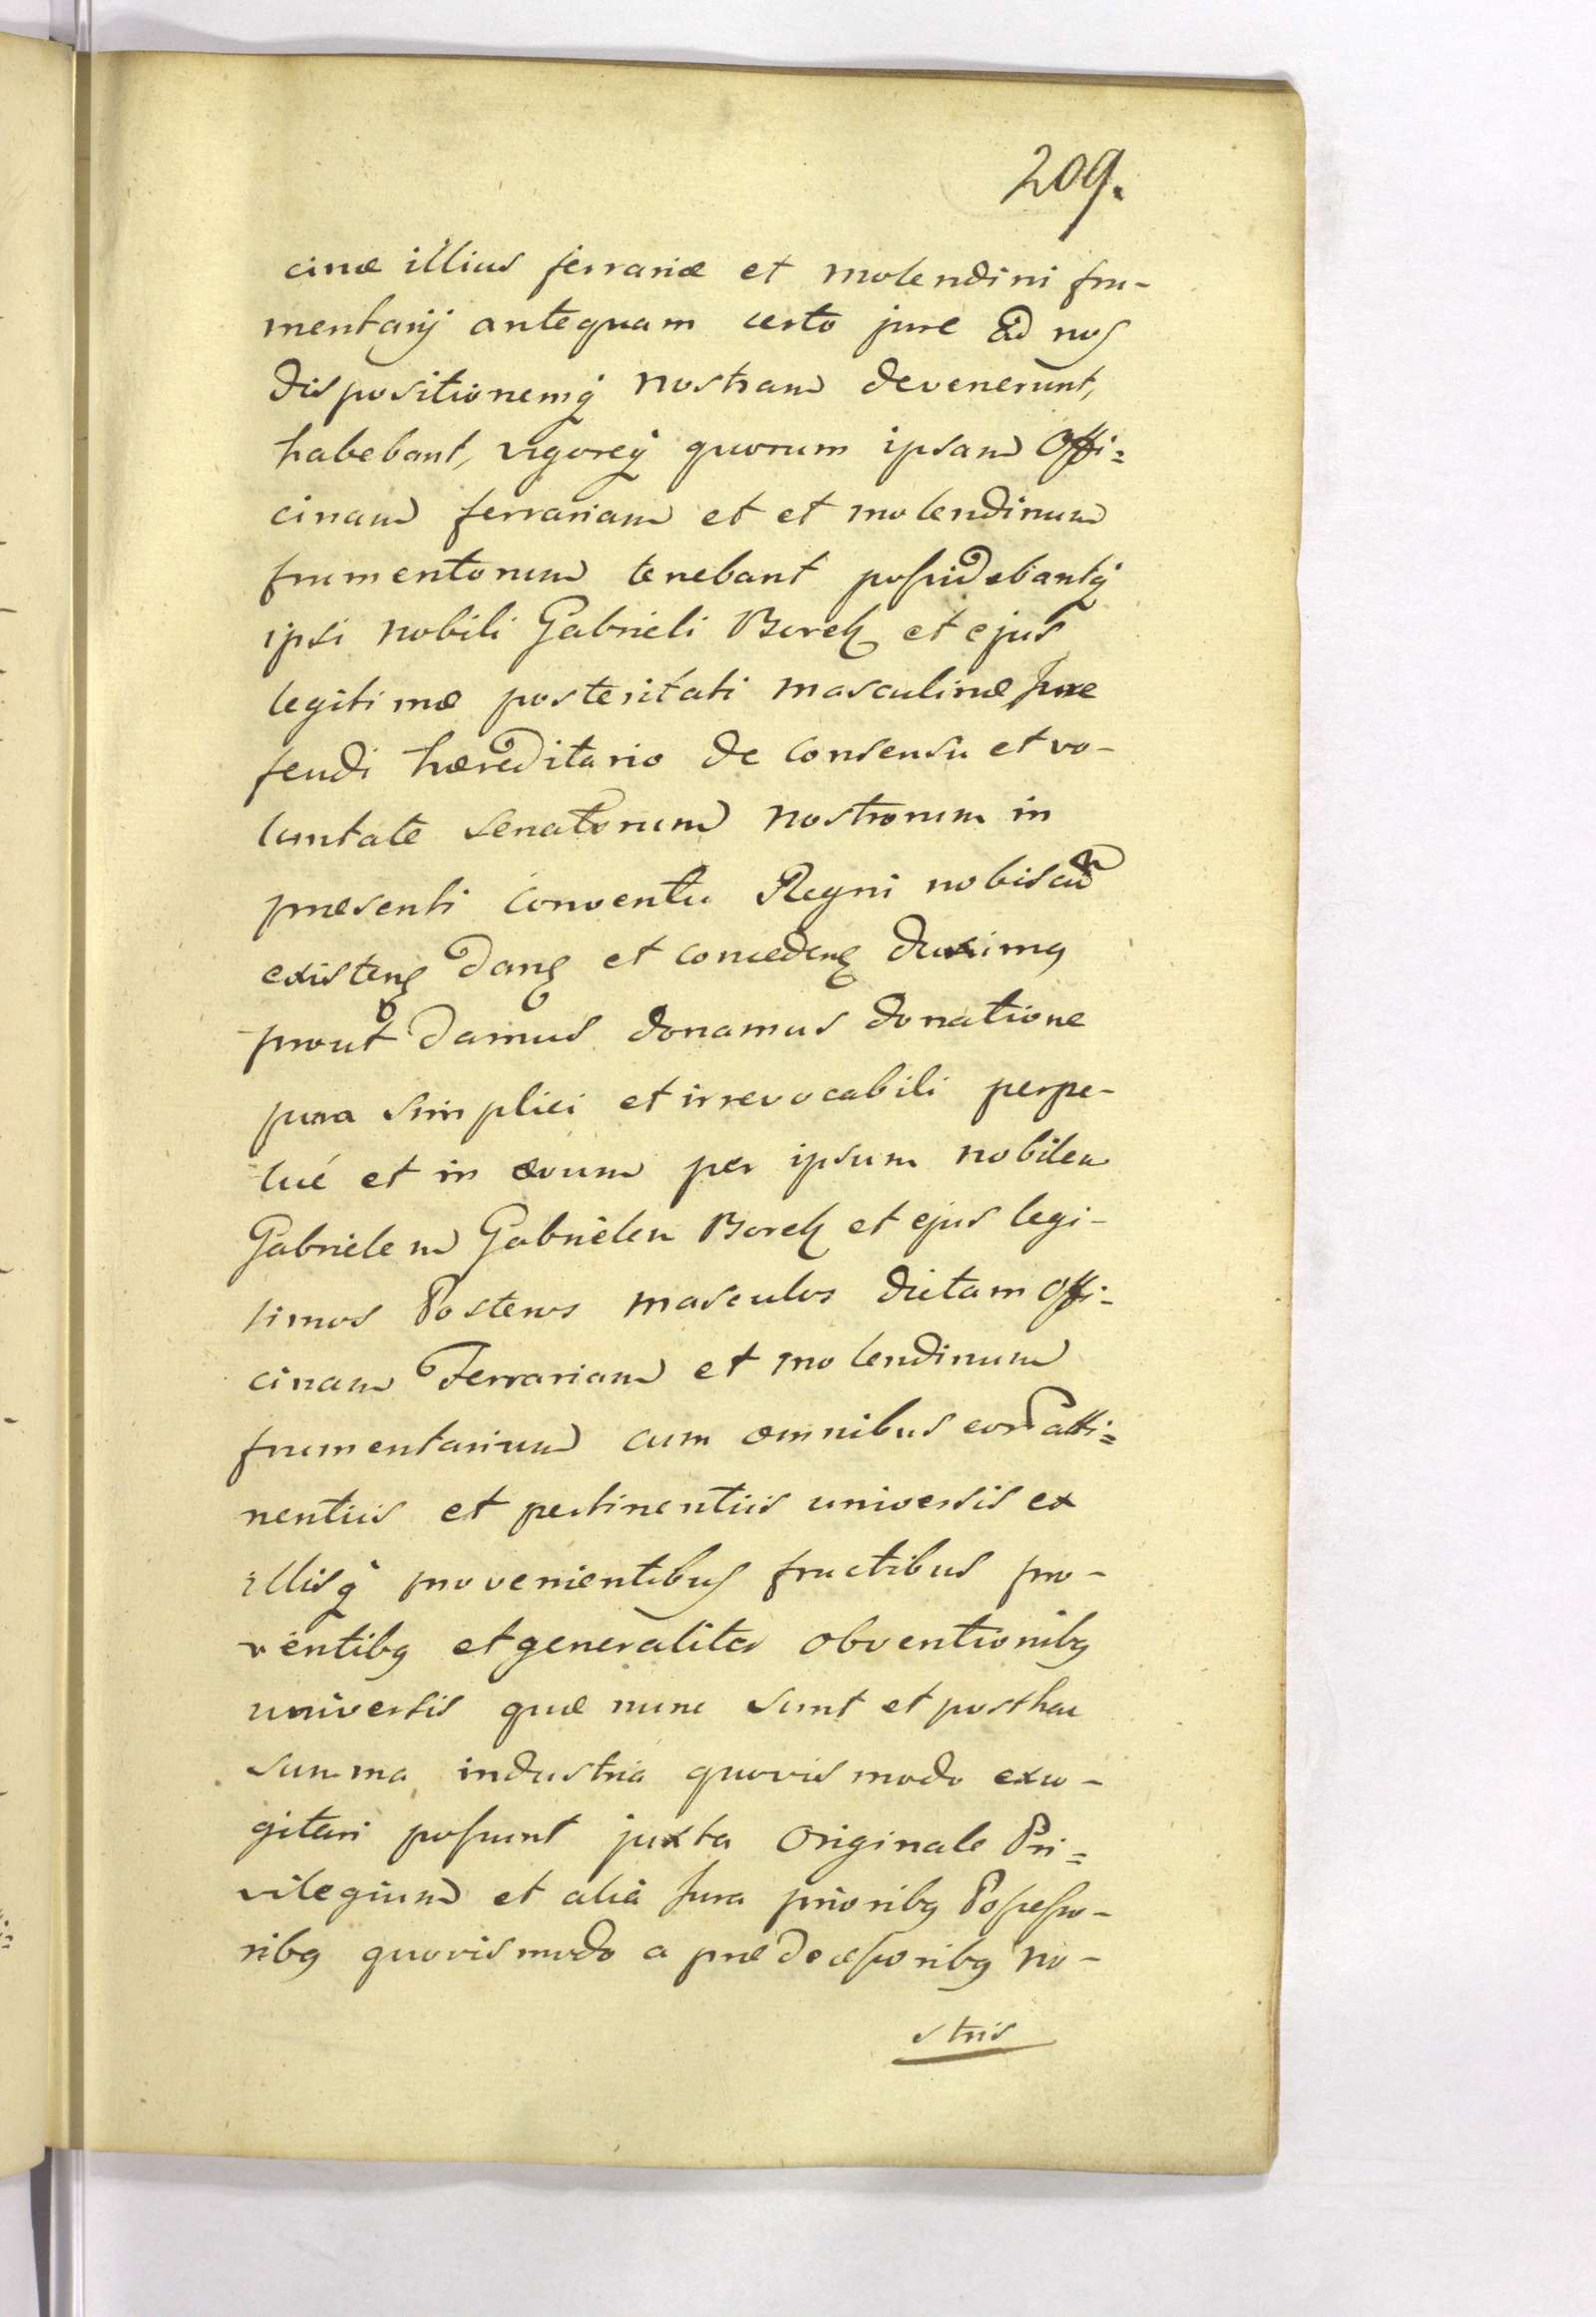 209.
cinæ illius ferrariæ et molendini fru-
mentarij antequam certo jure ad nos
dispositionemq́ nostram devenerunt,
habebant, vigoreq́ quorum ipsam Offi=
cinam ferrariam et et molendinum
frumentorum tenebant possidebantq́
ipsi nobili Gabrieli Borck et ejus
legitimæ posteritati masculinæ Jure
feudi hæreditario de consensu et vo-
luntate senatorum nostrorum in
præsenti conventu Regni nobiscu̅
existenꝭ danꝭ et concedenꝭ duximꝰ
prout damus donamus donatione
pura simplici et irrevocabili perpe-
tué et in ævum per ipsum nobilem
Gabrielem Gabrielem Borck et ejus legi-
timos Posteros masculos dictam Offi-
cinam Ferrariam et molendinum
frumentarium cum omnibus eor̅ atti=
nentiis et pertinentiis universis ex
illisq́ provenientibus fructibus pro-
ventibꝰ et generaliter obventionibꝰ
universis quæ nunc sunt et posthac
summa industria quovis modo exco-
gitari possunt juxta Originale Pri=
vilegium et alia Jura prioribꝰ Possesso-
ribꝰ quovis modo a prædecessoribꝰ no-
stris